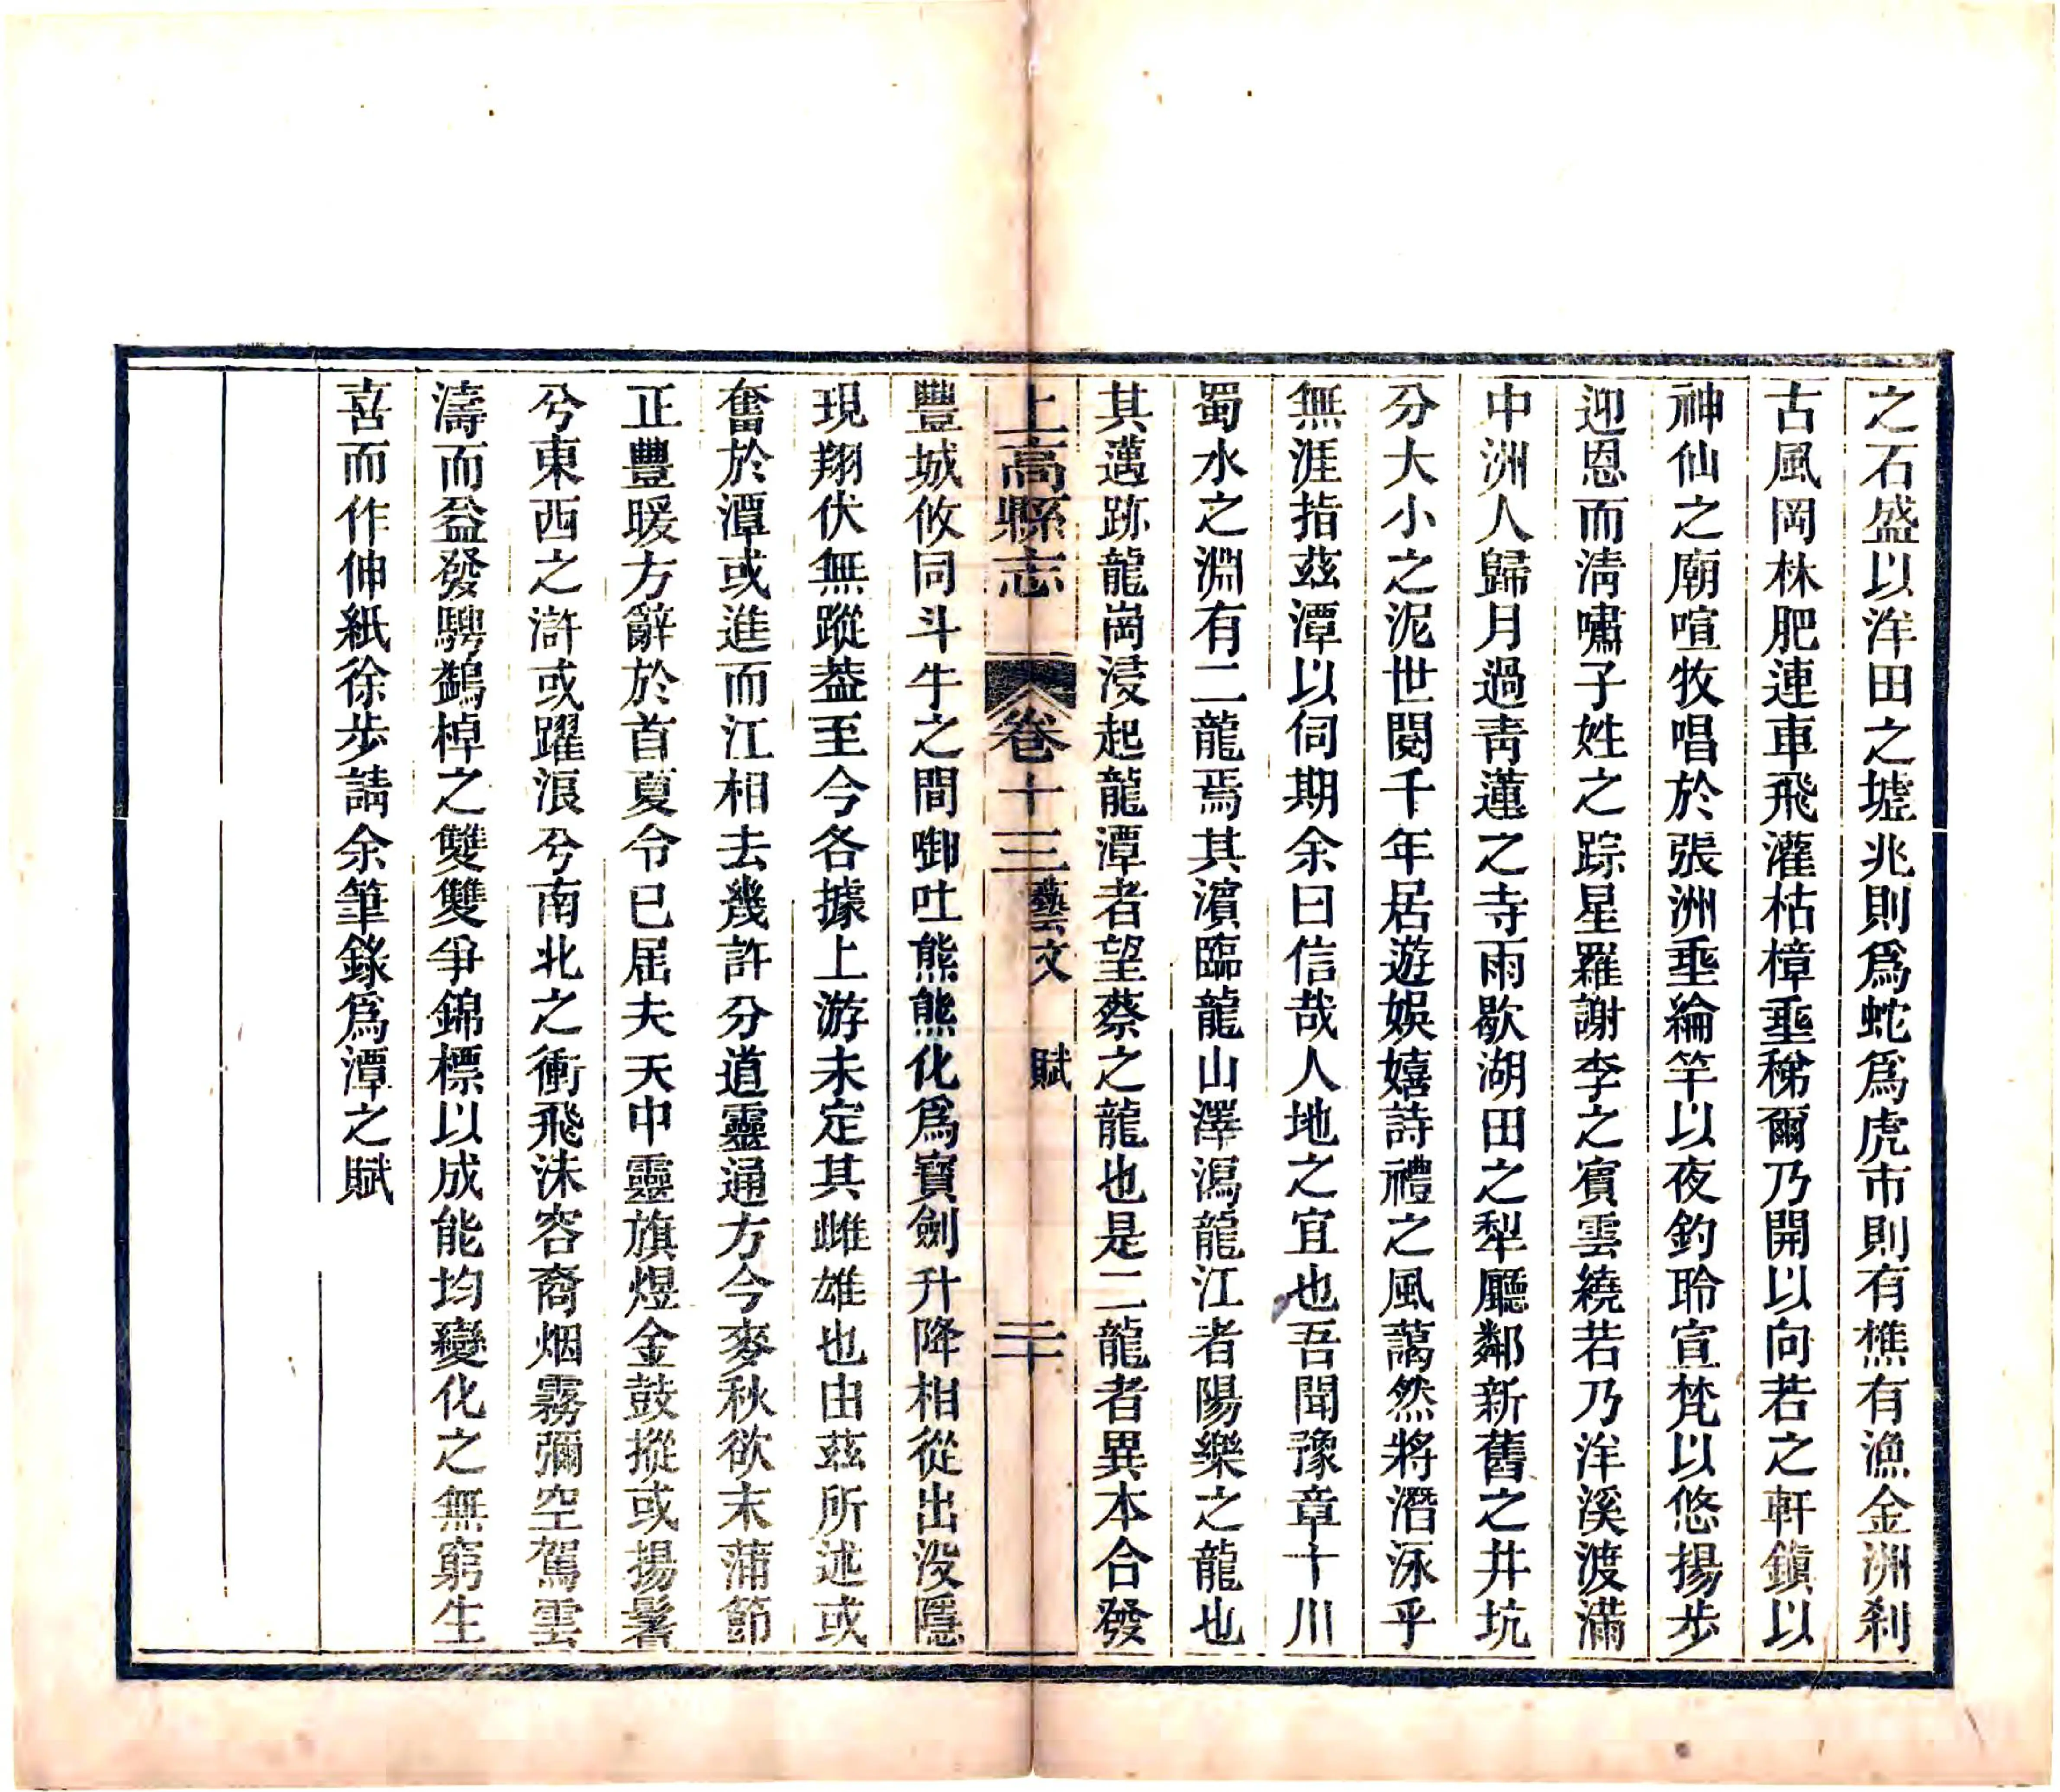 之石盛以洋田之墟兆則爲蛇爲虎市則有樵有漁金洲刹
古風岡林肥連車飛灌枯樟垂稊爾乃開以向若之軒鎮以
神仙之廟喧牧唱於張洲垂綸竿以夜釣聆宣梵以悠揚步
迎恩而淸嘯子姓之踪星羅謝李之賓雲繞若乃洋溪渡滿
中洲人歸月過靑蓮之寺雨歇湖田之犁廳鄰新舊之井坑
分大小之泥世閱千年居遊娛嬉詩禮之風藹然將潛泳乎
無涯指茲潭以伺期余曰信哉人地之宜也吾聞豫章十川
蜀水之淵有二龍焉其濱臨龍山澤瀉龍江者陽樂之龍也
其邁跡龍崗浸起龍潭者望蔡之龍也是二龍者異本合發
上高縣志 卷十三 藝文 賦 二十
豐城攸同斗牛之間啣吐熊熊化爲寶劍升降相從出沒隱
現翔伏無蹤葢至今各據上游未定其雌雄也由茲所述或
奮於潭或進而江相去幾許分道靈通方今麥秋欲末蒲節
正豐暖方辭於首夏令已屆夫天中靈旗煜金鼓摐或揚鬐
兮東西之滸或躍浪兮南北之衝飛沫容裔烟霧彌空駕雲
濤而益發騁鷁棹之雙雙爭錦標以成能均變化之無窮生
喜而作伸紙徐步請余筆錄爲潭之賦